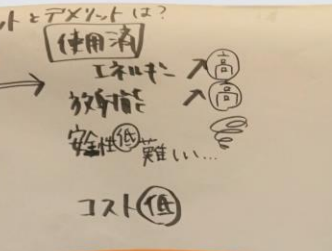 ットとデメリットは？
使用済
エネルギー ↗ 高
放射能 ↗ 高
安全性 低 難しい…
コスト 低